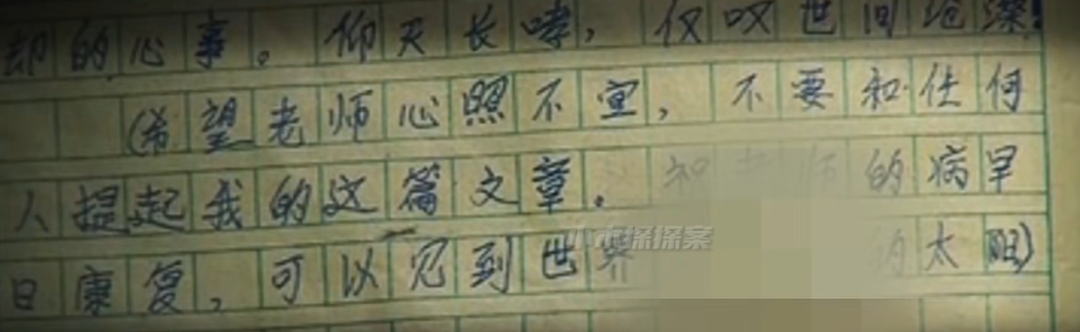 却的心事。仰天长哮，仅叹世间沧深！
(希望老师心照不宣，不要和任何
人提起我的这篇文章。 祝 师的病早
日康复，可以见到世界 的太阳)
小木探探案